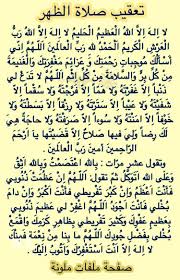 تعقيب صلاة الظهر
لا إله إلا الله العظيم الحليم لا إله إلا الله رب
العرش الكريم الحمد لله رب العالمين اللهم إني
أسألك موجبات رحمتك و عزائم مغفرتك والغنيمة
من كل بر والسلامة من كل إثم اللهم لا تدع لي
ذنباً إلا غفرته ولا هماً إلا فرجته ولا سقماً إلا
شفيته ولا عيباً إلا سترته ولا رزقاً إلا بسطته
ولا خوفاً إلا آمنته ولا سوءاً إلا صرفته ولا حاجة هي
لك رضاً ولي فيها صلاح إلا قضيتها يا أرحم
الراحمين آمين رب العالمين .
وتقول عشر مرات : بالله اعتصمت وبالله أثق
وعلى الله أتوكل ثم تقول اللهم إن عظمت ذنوبي
فأنت أعظم وإن كبر تفريطي فأنت أكبر وإن دام
بخلي فأنت أجود اللهم اغفر لي عظيم ذنوبي
بعظيم عفوك وكثير تفريطي بظاهر كرمك واقمع
بخلي بفضل جودك اللهم ما بنا من نعمة فمنك
لا إله إلا أنت أستغفرك وأتوب إليك .
صفحة ملفات ملونة